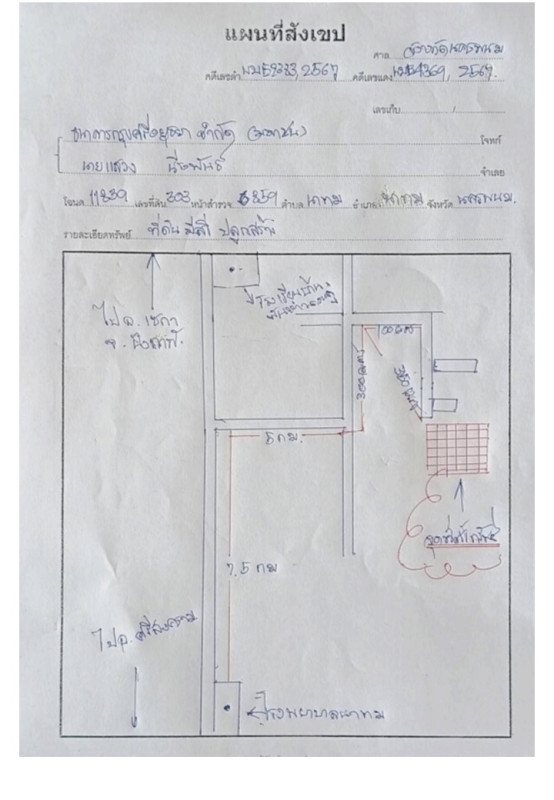 แผนที่สังเขป
ศาล จังหวัดนครพนม
คดีเลขดำ 2567 คดีเลขแดง 2567
เลขเก็บ /
ธนาคารกรุงศรีอยุธยา จำกัด (มหาชน) โจทก์
นายแสวง จำเลย
โฉนด 11839 เลขที่ดิน 303 หน้าสำรวจ 859 ตำบล นาทม อำเภอ นาทม จังหวัด นครพนม
รายละเอียดทรัพย์ ที่ดิน มีสิ่งปลูกสร้าง
ไป อ. เซกา
จ. บึงกาฬ
โรงเรียนบ้าน
100 เมตร
300 เมตร
350 เมตร
5 กม.
7.5 กม
จุดที่ตั้งทรัพย์
ไป อ. ศรีสงคราม
โรงพยาบาลนาทม